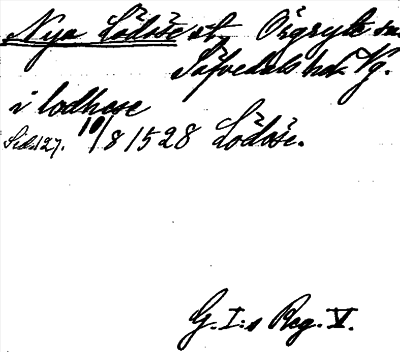 Nya Lödöse st, Örgryte sn
Säfvedals hd. Vg.
i lodhose
Sid. 127. 10/8 1528 Lödöse.
G. I:s Reg. V.